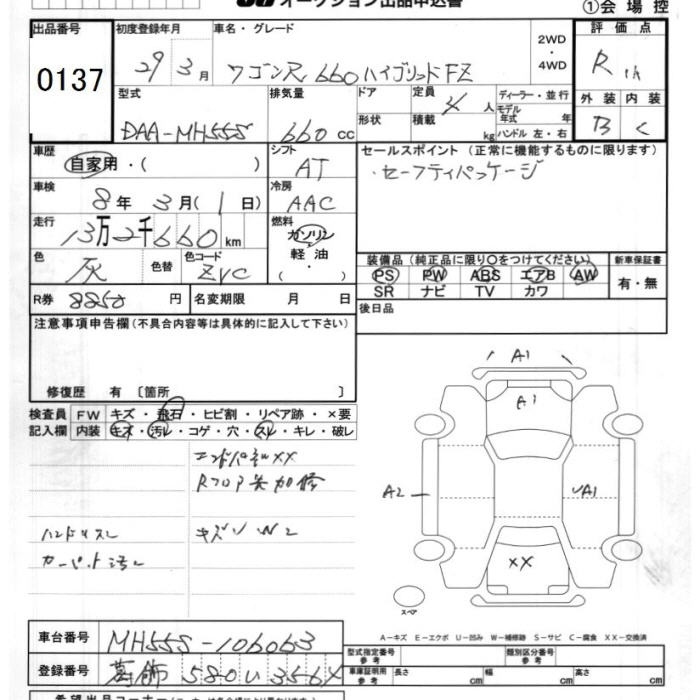 オークション出品申込書
①会場控
出品番号 初度登録年月 車名・グレード 評価点
0137 29年3月 ワゴンR 660ハイブリッドFZ 2WD・4WD R
型式 排気量 ドア 定員 4人 ディーラー・並行 外装 内装
DAA-MH55S 660cc 形状 積載 kg モデル年式 年 ハンドル 左・右 B C
車歴 シフト セールスポイント (正常に機能するものに限ります)
自家用・( ) AT ・セーフティパッケージ
車検 冷房
8年3月(1日) AAC
走行 燃料
13万2千660km ガソリン
軽油
色 色替 色コード ・( )
灰 ZVC
装備品 (純正品に限り○をつけてください) 新車保証書
PS PW ABS エアB AW 有・無
SR ナビ TV カワ
R券 8850円 名変期限 月 日 後日品
注意事項申告欄(不具合内容等は具体的に記入して下さい)
修復歴 有 〔箇所 〕
検査員 FW キズ・飛石・ヒビ割・リペア跡・×要
記入欄 内装 キズ・汚レ・コゲ・穴・スレ・キレ・破レ
XX
Rフロア 加修
ハンドルスレ キズ W2
カーペット汚レ
A1
A1
A2 A1
XX
スペア
A-キズ E-エクボ U-凹み W-補修跡 S-サビ C-腐食 XX-交換済
車台番号 MH55S-106063
型式指定番号 参考 類別区分番号 参考
登録番号 葛飾 580 い 3564
車庫証明用 参考 長さ cm 幅 cm 高さ cm
希望出品コーナー